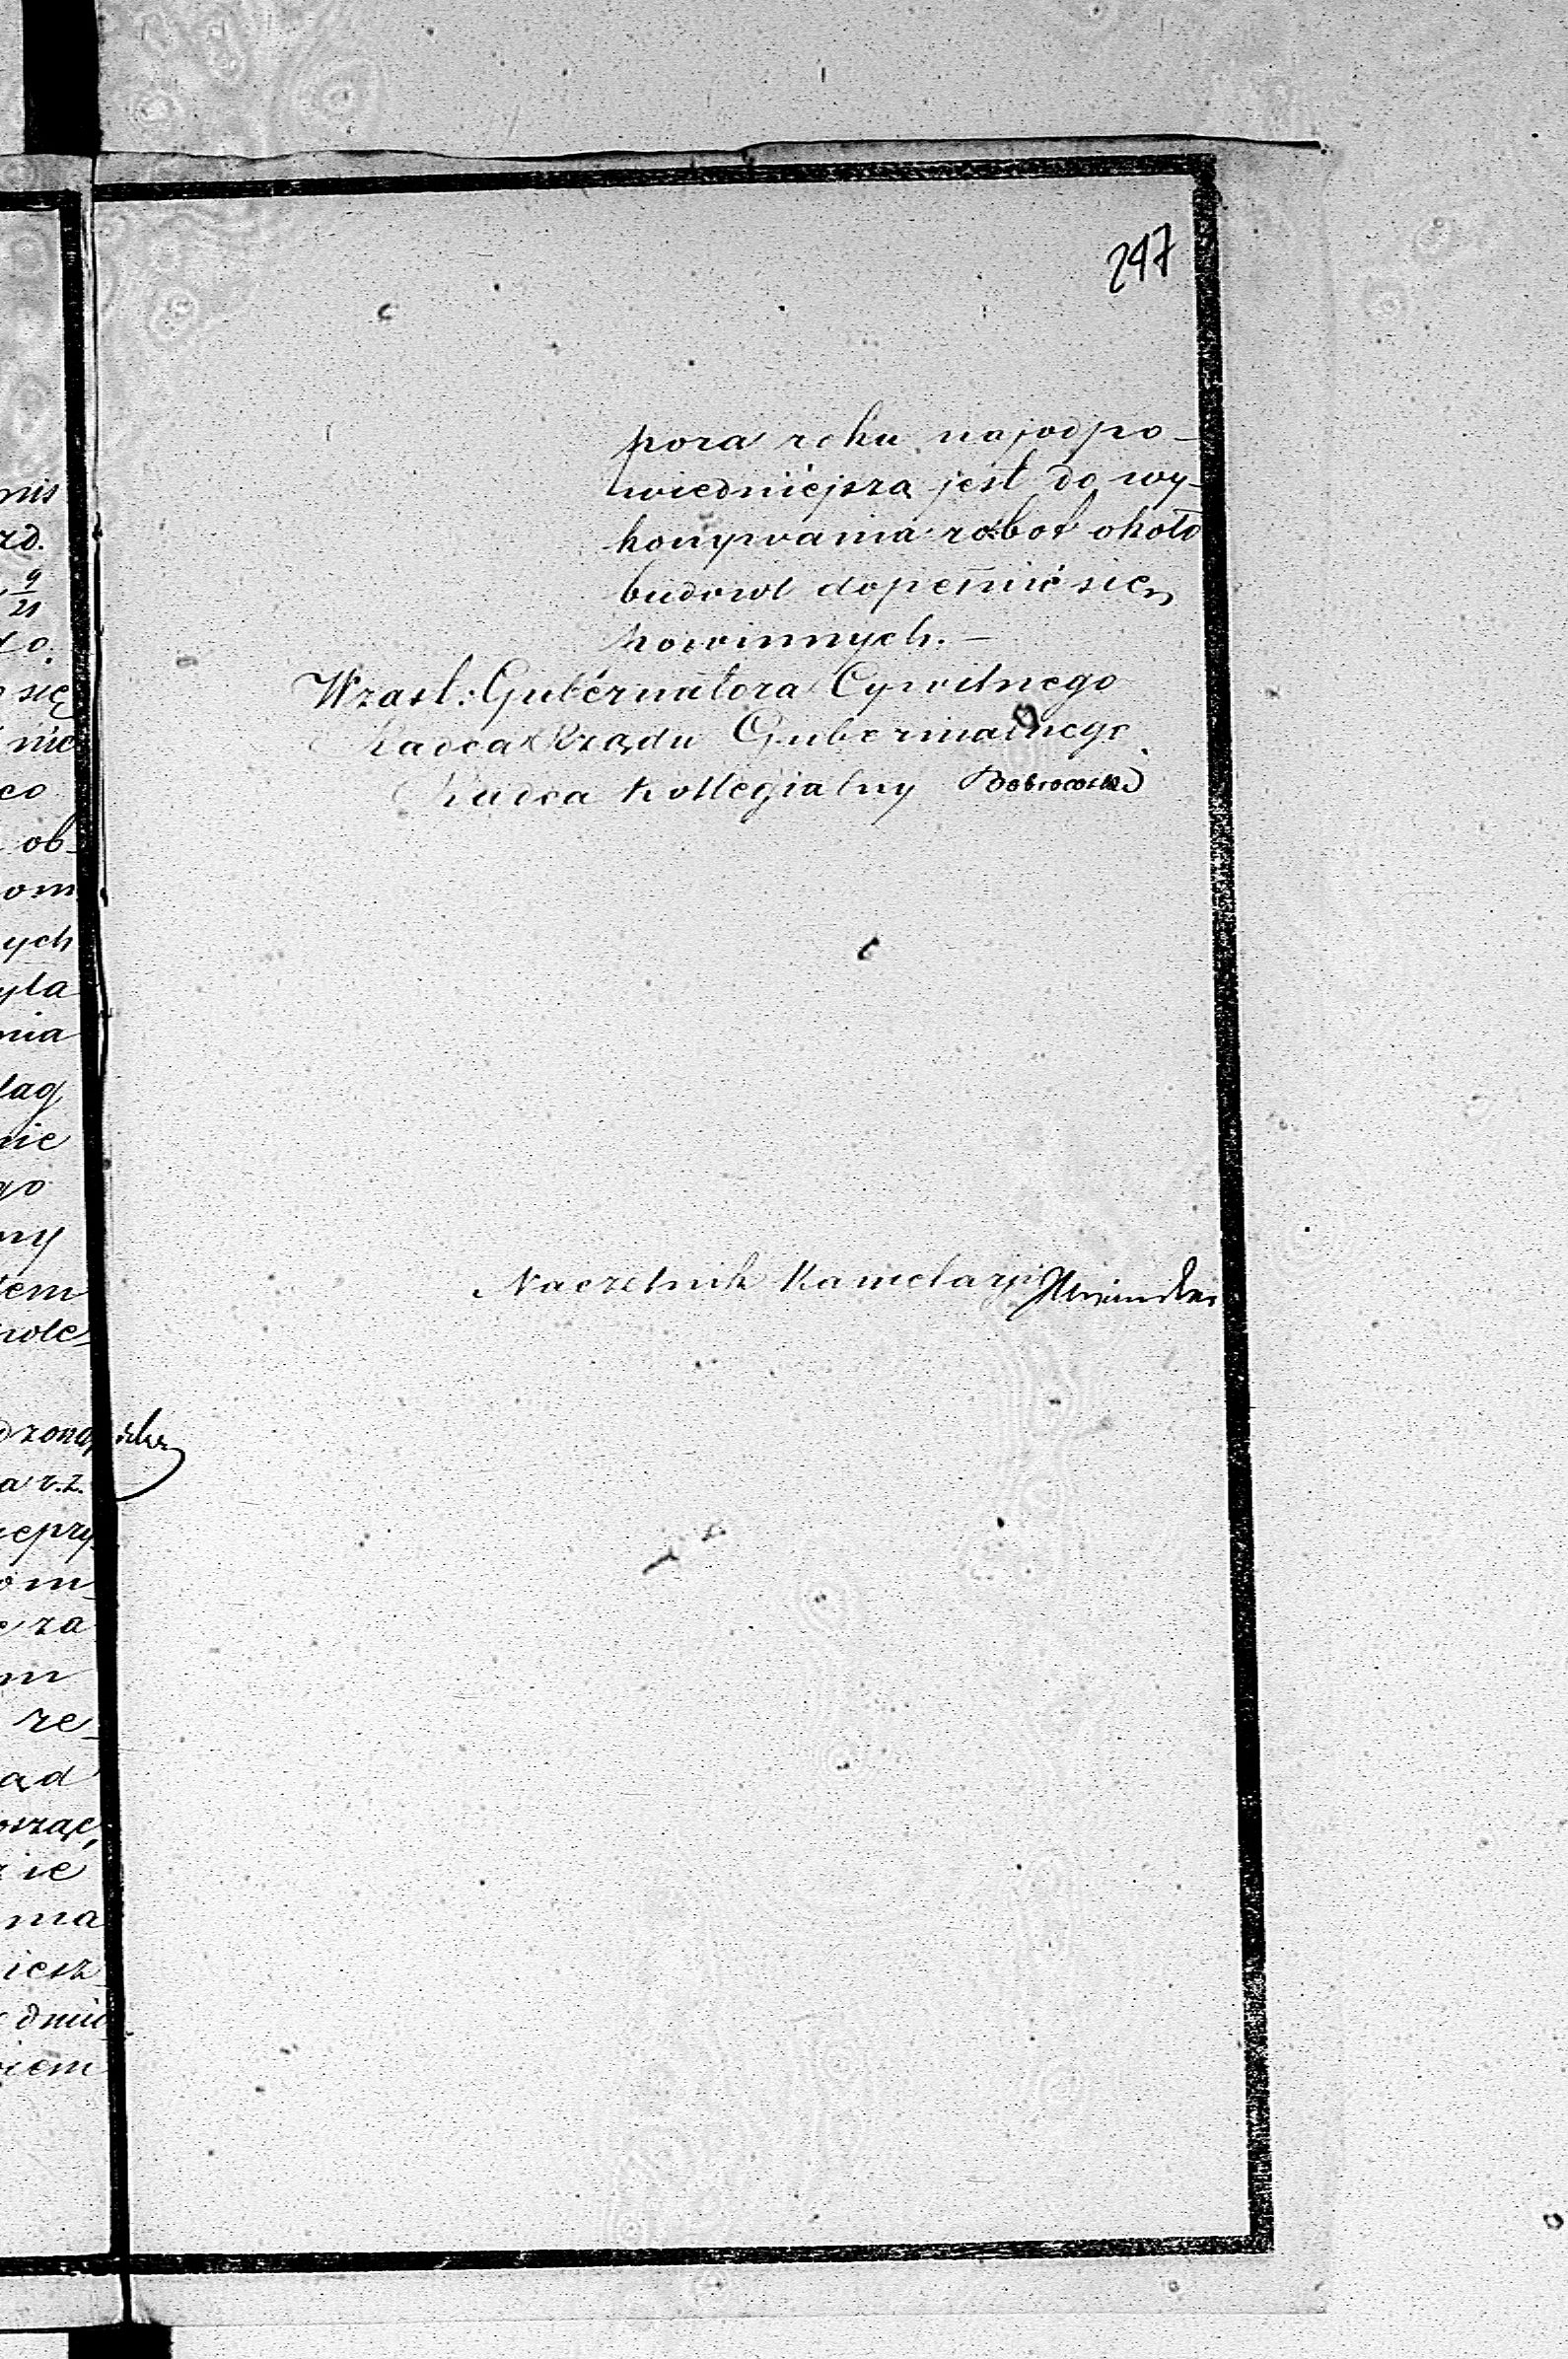 247
pora roku najodpo-
wiedniéjsza jest do wy-
konywania robot około
budowl dopełnić się
powinnych. —
W zast: Gubérnatora Cywilnego
Radca Rządu Gubernialnego
Radca Kollegialny Dobrowolski
Naczelnik Kancelaryi
mis
zd.
9
21
się
nie
ob-
om
ych
yła
nia
nie
go
ny
tem
a r.z.
za
m
re-
ąd
nia
iesz
dniu